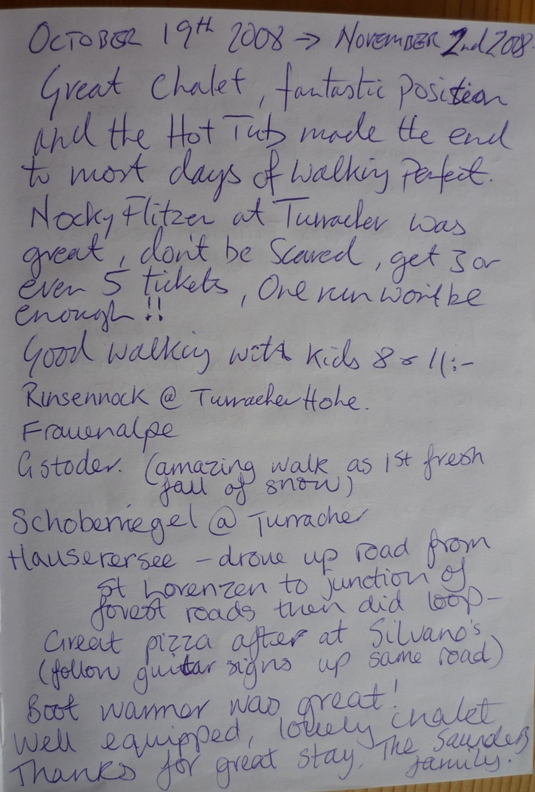 OCTOBER 19th 2008 → NOVEMBER 2nd 2008
Great Chalet, fantastic position
and the Hot Tub made the end
to most days of walking perfect.
Nocky Flitzer at Turracher was
great, don't be scared, get 3 or
even 5 tickets, One run won't be
enough!!
Good walking with kids 8 & 11:-
Rinsennock @ Turracher Hohe.
Frauenalpe
Gstoder. (amazing walk as 1st fresh
fall of snow)
Schoberriegel @ Turracher
Hauserersee – drove up road from
St Lorenzen to junction of
forest roads then did loop –
Great pizza after at Silvano's
(follow guitar signs up same road)
Boot warmer was great!
Well equipped, lovely chalet
Thanks for great stay. The Saunders
family.